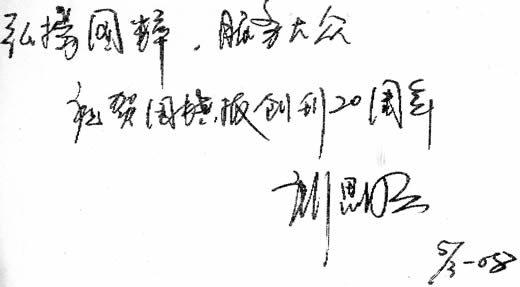 弘扬国粹，服务大众
祝贺围棋报创刊20周年
刘思明
5/3-08